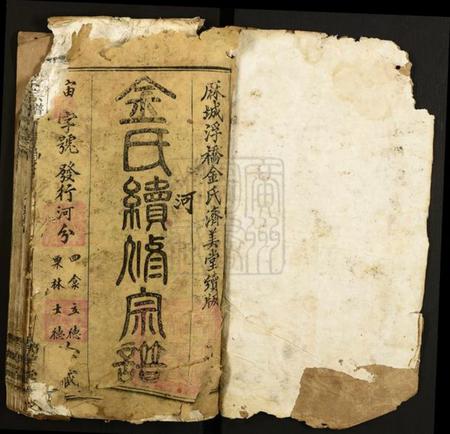 麻城浮橋金氏濟美堂續版
河
金氏續修宗譜
宙字號 發行河分
立德
栗林 士德
藏